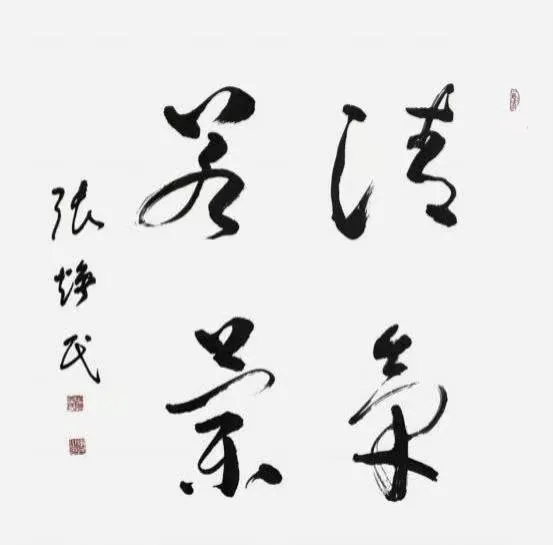 清氣
若蘭
張煥民